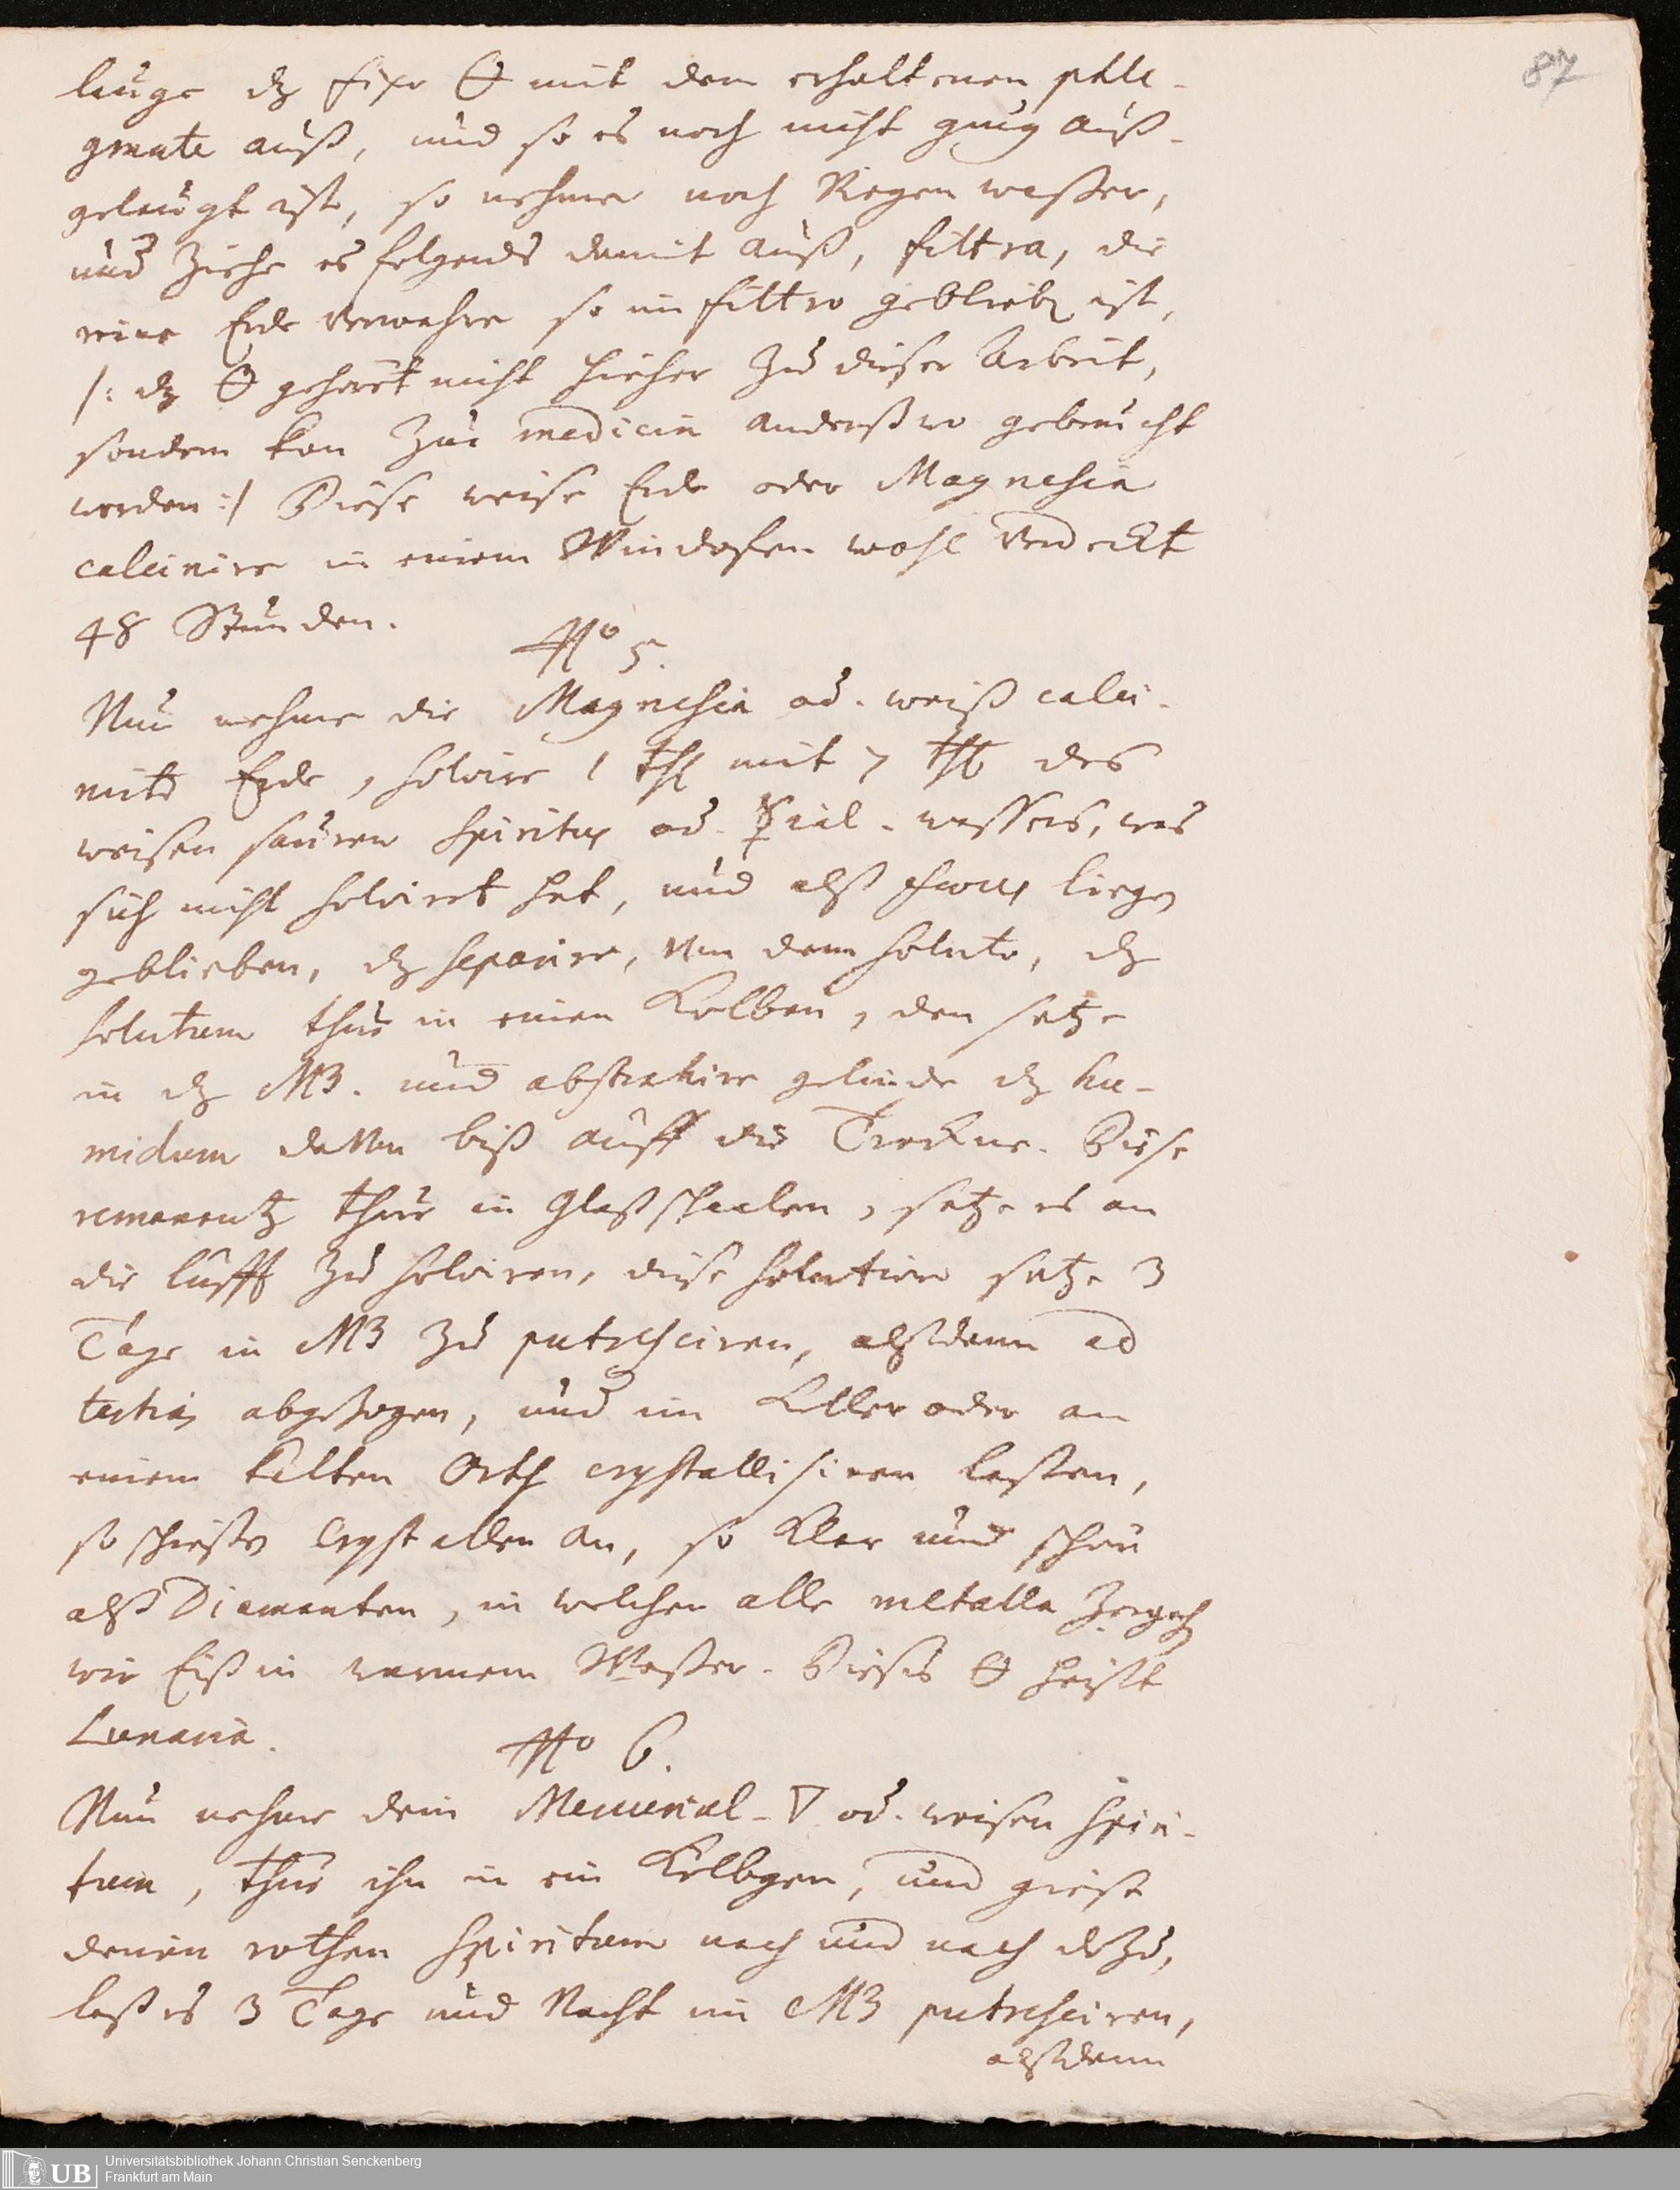 87
lauge dz fixe 🜔 mit dem erhaltenen phle-
gmate auß, und so es noch nicht gnug auß-
gelaugt ist, so nehme noch Regen waßer,
und Ziehe es folgends damit auß, filtra, die
reine Erde verwahre so im filtro gebliebn ist,
/: dz 🜔 gehöret nicht hieher zu dieser Arbeit,
sondern kan zur medicin anderßwo gebraucht
werden :/ Diese weise Erde oder Magnesia
calcinire in einem Windofen wohl verdeckt
48 Stunden.
No 5.
Nun nehme die Magnesia od. weiß calci-
nirte Erde, solvire 1 thl mit 7 thl des
weisen sauren Spiritus od. ☿rial-wassers, was
sich nicht solviret hat, und alß foeces liegen
geblieben, dz separire, von dem soluto, dz
solutum thue in einen Kolben, den setze
in dz MB. und abstrahire gelinde dz hu-
midum davon biß auff die Trockne. Diese
remanentz thue in Glaßschaalen, setze es an
die lufft zu solviren, diese solution setze 3
Tage in MB zu putresciren, alßdenn ad
tertias abgezogen, und im Keller oder an
einem kalten Orth crystallisiren laßen,
so schießen Crystallen an, so klar und schön
alß Diamanten, in welchen alle metalla zergehn
wie Eiß in warmem Waßer. Dieses 🜔 heist
Lunaria.
No 6.
Nun nehme dein Mercurial-▽ od. weisen Spiri-
tum, thue ihn in ein Kölbgen, und giese
deinen rothen Spiritum nach und nach dazu,
laß es 3 Tage und Nacht im MB putresciren,
alßdenn
UB
Universitätsbibliothek Johann Christian Senckenberg
Frankfurt am Main